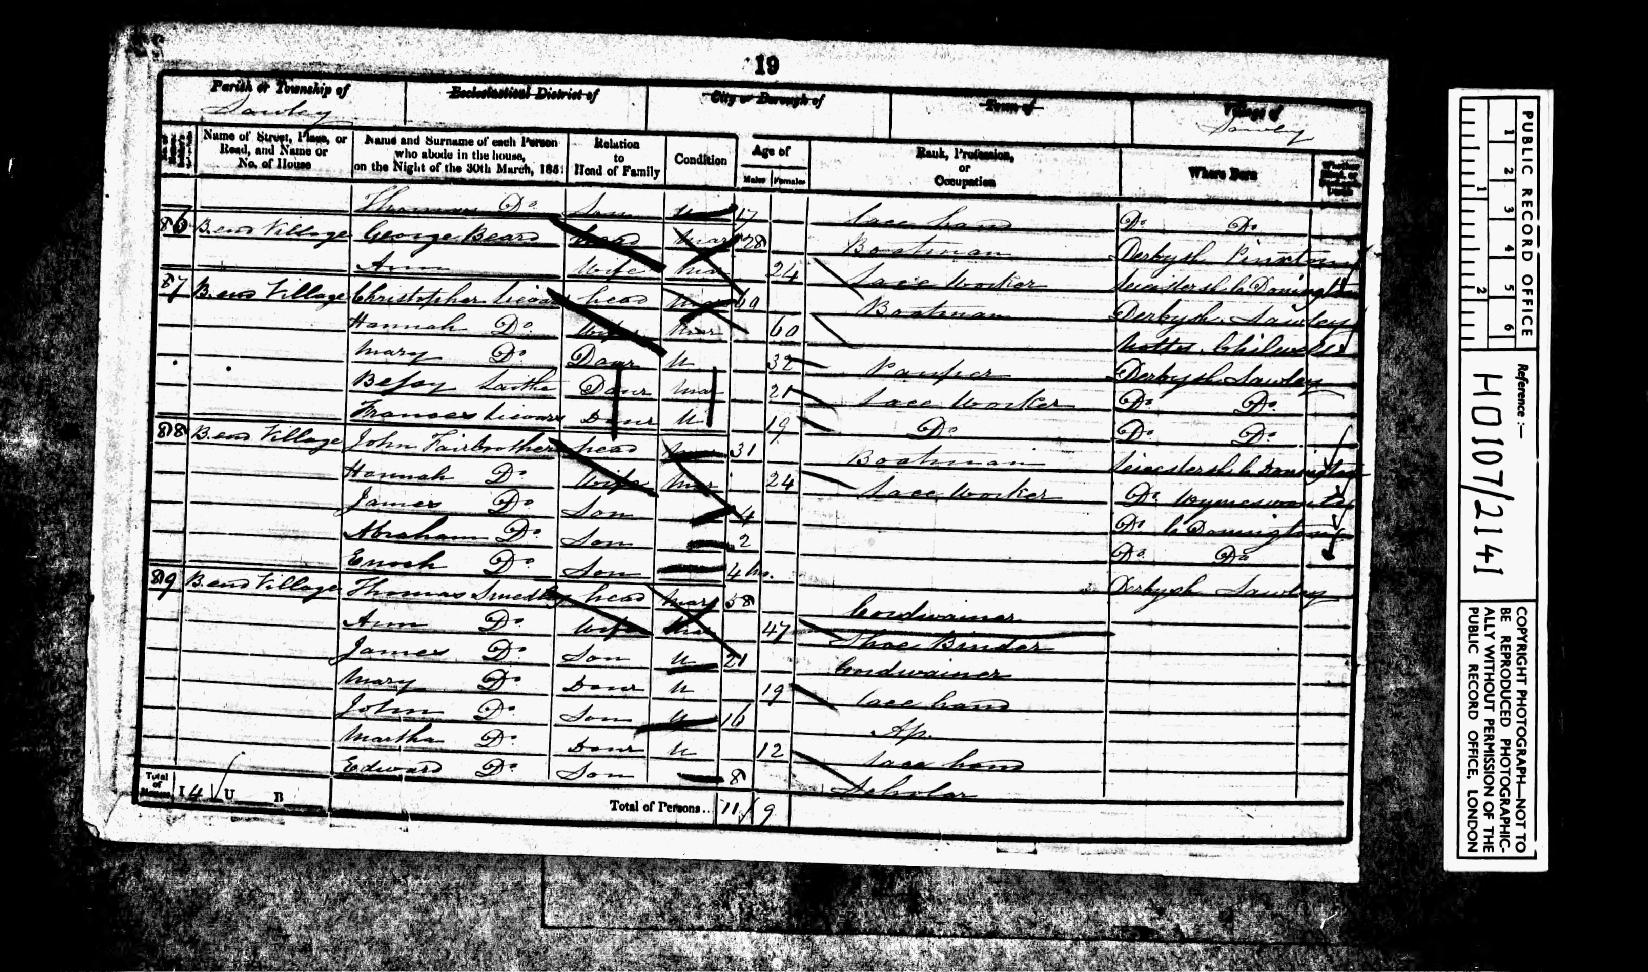 19
Parish or Township of Ecclesiastical District of City or Borough of Town of Village of
Sawley Sawley
Name of Street, Place, or Road, and Name or No. of House
Name and Surname of each Person who abode in the house, on the Night of the 30th March, 1851
Relation to Head of Family
Condition
Age of
Males Females
Rank, Profession, or Occupation
Where Born
Thomas Do Son U 17 Lace hand Do Do
86 B. end Village George Beard head mar 28 Boatman Derbysh Pinxton
Ann Wife mar 24 Lace Worker Leicestersh C Donington
87 B. end Village Christopher head mar 60 Boatman Derbysh. Sawley
Hannah Do Wife mar 60 Notts. Chilwell
Mary Do Daur U 32 Pauper Derbysh Sawley
Bessy Daur mar 21 Lace Worker Do Do
Frances Daur U 19 Do Do Do
88 B. end Village John Fairbrother head mar 31 Boatman Leicestersh C Donington
Hannah Do Wife mar 24 Lace Worker Do Wymeswould
James Do Son 4 Do C Donington
Abraham Do Son 2 Do Do
Enoch Do Son 4 mo. Derbysh Sawley
89 B. end Village Thomas Smedley head mar 58 Cordwainer
Ann Do Wife mar 47 Shoe Binder
James Do Son U 21 Cordwainer
Mary Do Daur U 19 Lace hand
John Do Son U 16 Ap.
Martha Do Daur U 12 Lace hand
Edward Do Son 8 Scholar
Total of Houses I 4 U B Total of Persons.. 11 9
PUBLIC RECORD OFFICE
1 2 3 4 5 6
1 2
Reference :—
HO 107/2141
COPYRIGHT PHOTOGRAPH—NOT TO
BE REPRODUCED PHOTOGRAPHIC-
ALLY WITHOUT PERMISSION OF THE
PUBLIC RECORD OFFICE, LONDON